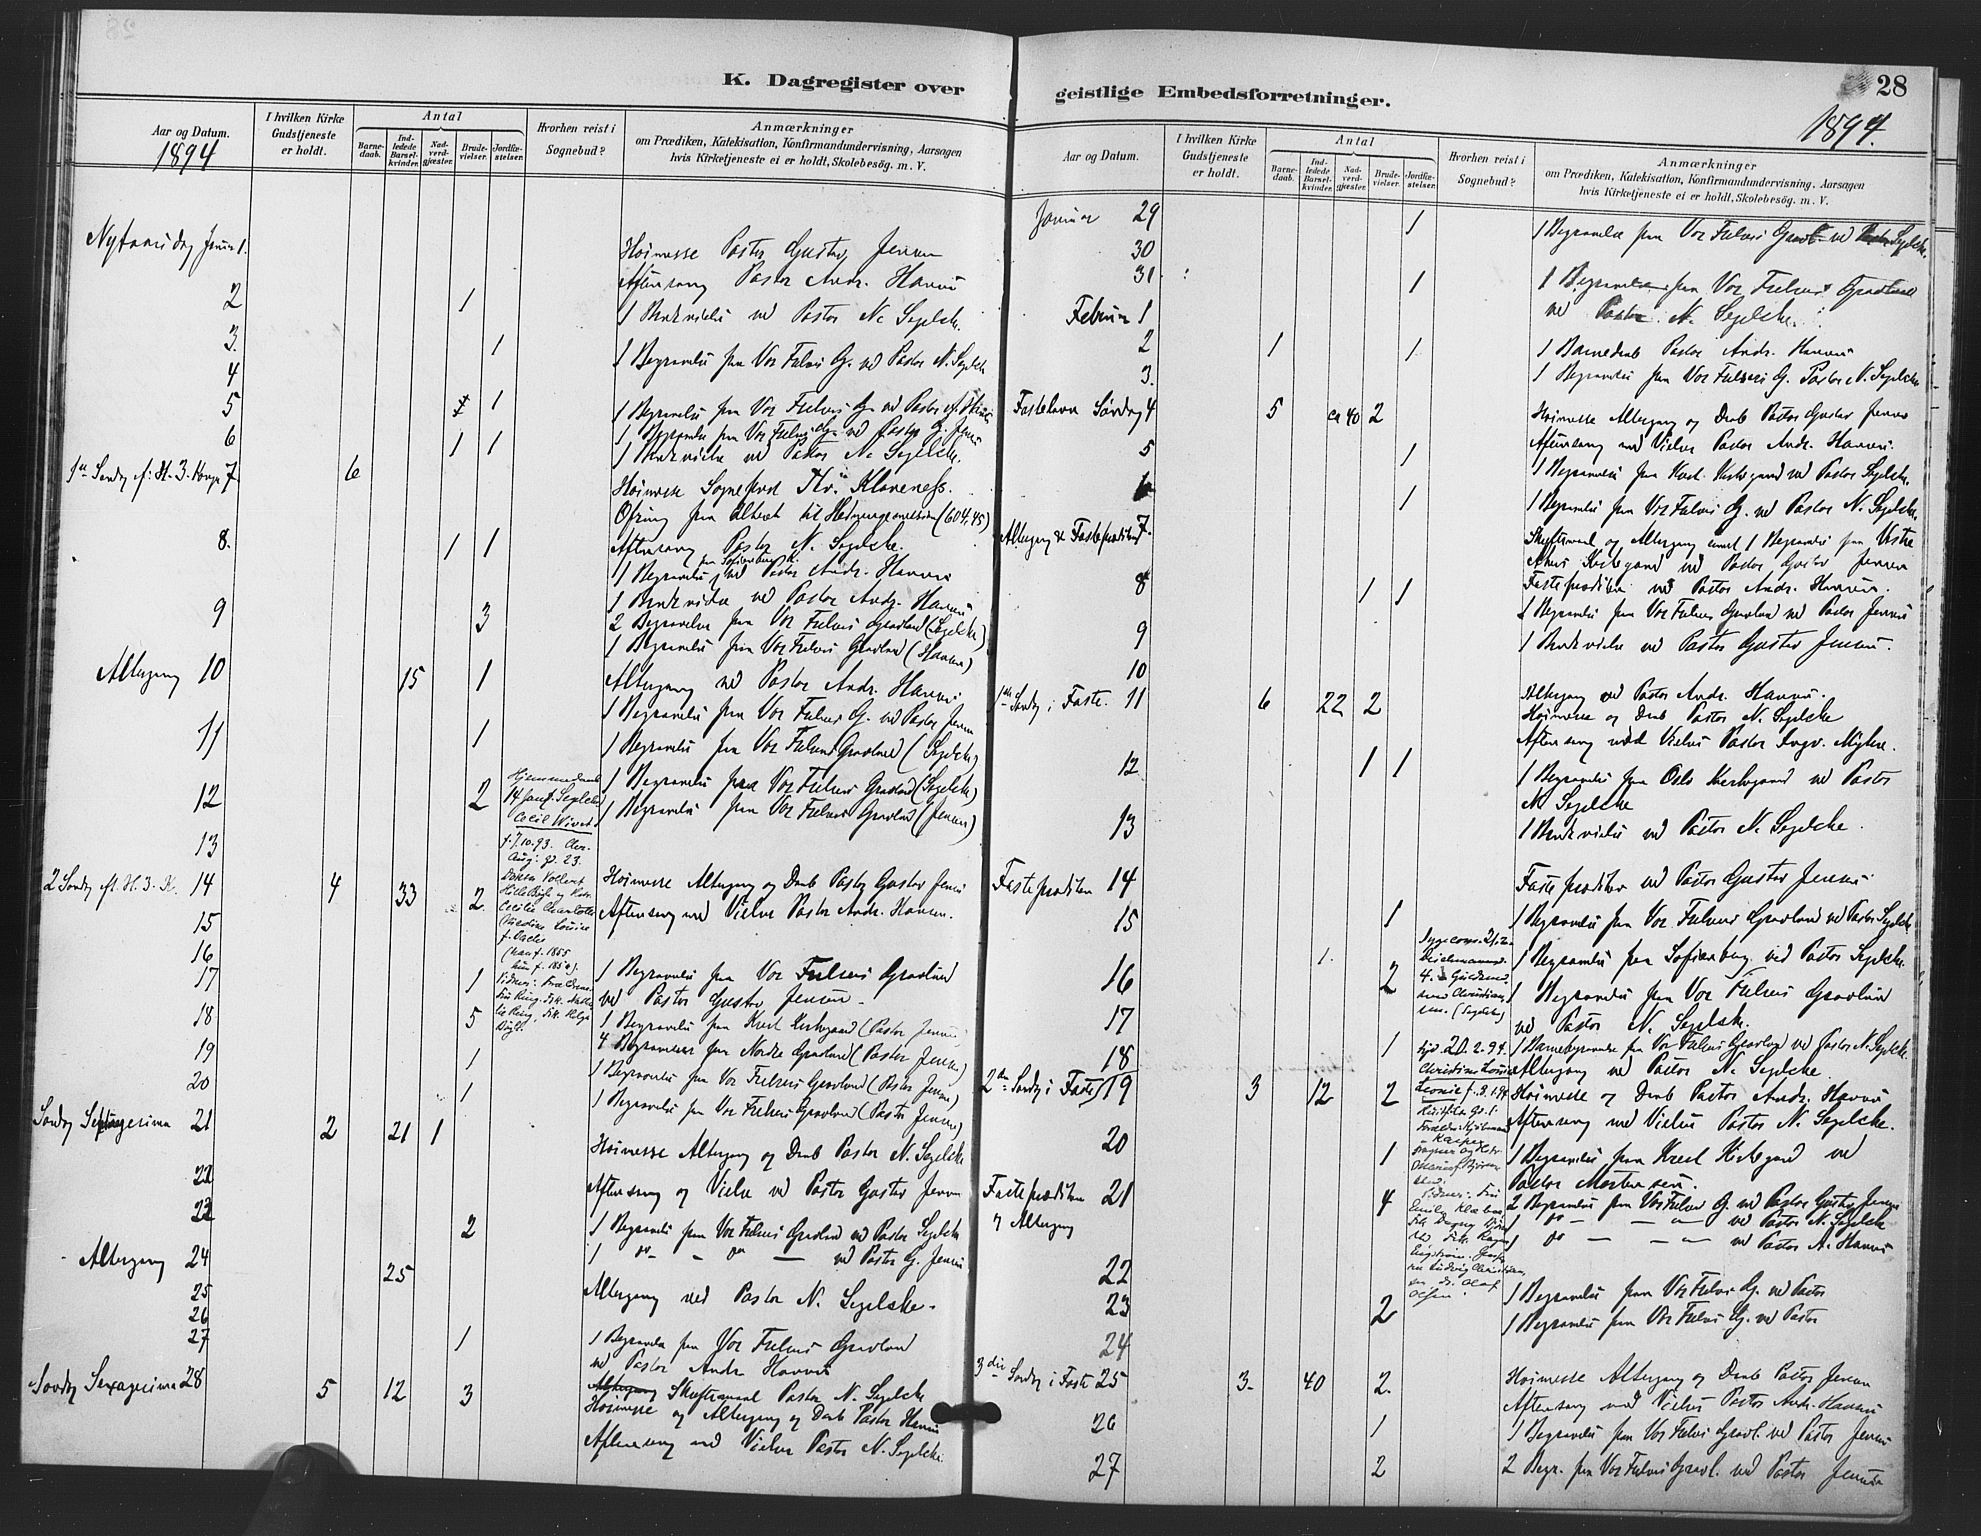 K. Dagregister over
Aar og Datum.
1894
I hvilken Kirke Gudstjeneste er holdt.
Antal
Barne-daab.
Ind-ledede Barsel-kvinder.
Nad-verd-gjæster.
Brude-vielser.
Jordfæ-stelser.
Hvorhen reist i Sognebud?
Anmærkninger
om Prædiken, Katekisation, Konfirmandundervisning, Aarsagen
hvis Kirketjeneste ei er holdt, Skolebesøg. m. V.
Nytaarsdag Januar 1.
Høimesse Pastor Gustav Jensen
Aftensang Pastor Andr. Hansen
2 1 1 Brudevielse ved Pastor N. Segelcke.
3. 1 1 Begravelse fra Vor Frelsers G. ved Pastor N. Segelcke
4
5 1 1 Begravelse fra Vor Frelsers G. ved Pastor
1 Begravelse fra Vor Frelsers G. ved Pastor G. Jensen
6 1 1 1 Brudevielse ved Pastor N. Segelcke.
1ste Søndag e. H. 3. Konger 7 6 Høimesse Sogneprest Thv. Klaveness.
Ofring fra Alteret til Hedningemissionen (604,45)
Aftensang Pastor N. Segelcke.
8. 1 1 1 Begravelse fra Sofienberg K. ved Pastor Andr. Hansen
1 Brudevielse ved Pastor Andr. Hansen
9 3 2 Begravelser fra Vor Frelsers Gravlund (Segelcke)
1 Begravelse fra Vor Frelsers Gravlund (Hansen)
Altergang 10 15 1 Altergang ved Pastor Andr. Hansen
1 Begravelse fra Vor Frelsers G. ved Pastor Jensen
11 1 1 Begravelse fra Vor Frelsers Gravlund (Segelcke)
12 2 1 Begravelse fra Vor Frelsers Gravlund (Segelcke)
1 Begravelse fra Vor Frelsers Gravlund (Jensen)
Hjemmedaab
14 Jan. Segelcke
Cecil Wivet
f. 7.10.93.
Aug. g. 23.
13
2 Søndag e. H. 3. K. 14 4 33 2. Høimesse Altergang og Daab Pastor Gustav Jensen
Aftensang med Vielse Pastor Andr. Hansen.
Cecilie Charlotte
Louise
(han f. 1855
hun f. 1854).
15
16
17 1 1 Begravelse fra Vor Frelsers Gravlund
ved Pastor Gustav Jensen.
18 5 1 Begravelse fra Krist Kirkegaard (Pastor Jensen)
4 Begravelser fra Nordre Gravlund (Pastor Jensen)
19 1 1 Begravelse fra Vor Frelsers Gravlund (Pastor Jensen)
20 1 1 Begravelse fra Vor Frelsers Gravlund (Pastor Jensen)
Søndag Septuagesima 21 2 21 1 Høimesse Altergang og Daab Pastor N. Segelcke
Aftensang og Vielse ved Pastor Gustav Jensen
22
23 2 1 Begravelse fra Vor Frelsers Gravlund ved Pastor Segelcke
1 do – – do – ved Pastor G. Jensen
Altergang 24 25 Altergang ved Pastor N. Segelcke.
25
26
27 1 1 Begravelse fra Vor Frelsers Gravlund
ved Pastor Andr. Hansen
Søndag Sexagesima 28 5 12 3 Altergang Skriftemaal Pastor N. Segelcke
Høimesse og Altergang og Daab Pastor Hansen
Aftensang med Vielse Pastor N. Segelcke.
geistlige Embedsforretninger.
28
1894.
Aar og Datum.
I hvilken Kirke Gudstjeneste er holdt.
Antal
Barne-daab.
Ind-ledede Barsel-kvinder.
Nad-verd-gjæster.
Brude-vielser.
Jordfæ-stelser.
Hvorhen reist i Sognebud?
Anmærkninger
om Prædiken, Katekisation, Konfirmandundervisning, Aarsagen
hvis Kirketjeneste ei er holdt, Skolebesøg. m. V.
Januar 29 1 1 Begravelse fra Vor Frelsers Gravl. ved Segelcke.
30
31 1 1 Begravelse fra Vor Frelsers Gravlund
ved Pastor N. Segelcke.
Februar 1
2 1 1 1 Barnedaab Pastor Andr. Hansen
1 Begravelse fra Vor Frelsers G. Pastor N. Segelcke
3.
Fastelavn Søndag 4 5 ca 40 2 Høimesse Altergang og Daab Pastor Gustav Jensen
Aftensang med Vielse Pastor Andr. Hansen.
5 1 1 Begravelse fra Krist Kirkegaard ved Pastor Segelcke.
6 1 1 Begravelse fra Vor Frelsers G. ved Pastor N. Segelcke.
Altergang & Fasteprædiken 7. Skriftemaal og Altergang samt 1 Begravelse fra Vestre
Akers Kirkegaard ved Pastor Gustav Jensen
Fasteprædiken ved Pastor Andr. Hansen.
8 1 1 1 Begravelse fra Vor Frelsers Gravlund ved Pastor Jensen
1 Brudevielse ved Pastor Gustav Jensen.
9
10
1ste Søndag i Faste. 11 6 22 2 Altergang ved Pastor Andr. Hansen.
Høimesse og Daab Pastor N. Segelcke
Aftensang med Vielse Pastor Ingv. Myhre.
12 1 1 1 Begravelse fra Oslo Kirkegaard ved Pastor
N. Segelcke
1 Brudevielse ved Pastor N. Segelcke.
13
Fasteprædiken 14 Fasteprædiken ved Pastor Gustav Jensen
15 1 1 Begravelse fra Vor Frelsers Gravlund ved Pastor Segelcke
16 1. 2 1 Begravelse fra Sofienberg ved Pastor Segelcke
1 Begravelse fra Vor Frelsers Gravlund
ved Pastor N. Segelcke.
(Segelcke)
17 1 1 Barnebegravelse fra Vor Frelsers Gravlund ved Pastor N. Segelcke.
18 Altergang ved Pastor N. Segelcke
20.2.94.
2den Søndag i Faste 19 3 12 2 Høimesse og Daab Pastor Andr. Hansen
Aftensang med Vielse Pastor N. Segelcke.
20 1 1 Begravelse fra Krist Kirkegaard ved
Pastor Mortensen.
Fasteprædiken 21 4 2 Begravelser fra Vor Frelsers G. ved Pastor Gustav Jensen
& Altergang 1 do – – – ved Pastor N. Segelcke
1 do – – – ved Pastor A. Hansen
22
1 Begravelse fra Vor Frelsers G. ved Pastor
23 2 1 Begravelse fra Vor Frelsers G. ved Pastor
24
3die Søndag i Faste 25 3. 40 2. Høimesse Altergang og Daab Pastor Jensen
Aftensang med Vielse Pastor Andr. Hansen
26 1 1 Begravelse fra Vor Frelsers Gravl. ved Pastor Jensen
27 2 2 Begr. fra Vor Frelsers Gravl. ved Pastor Jensen